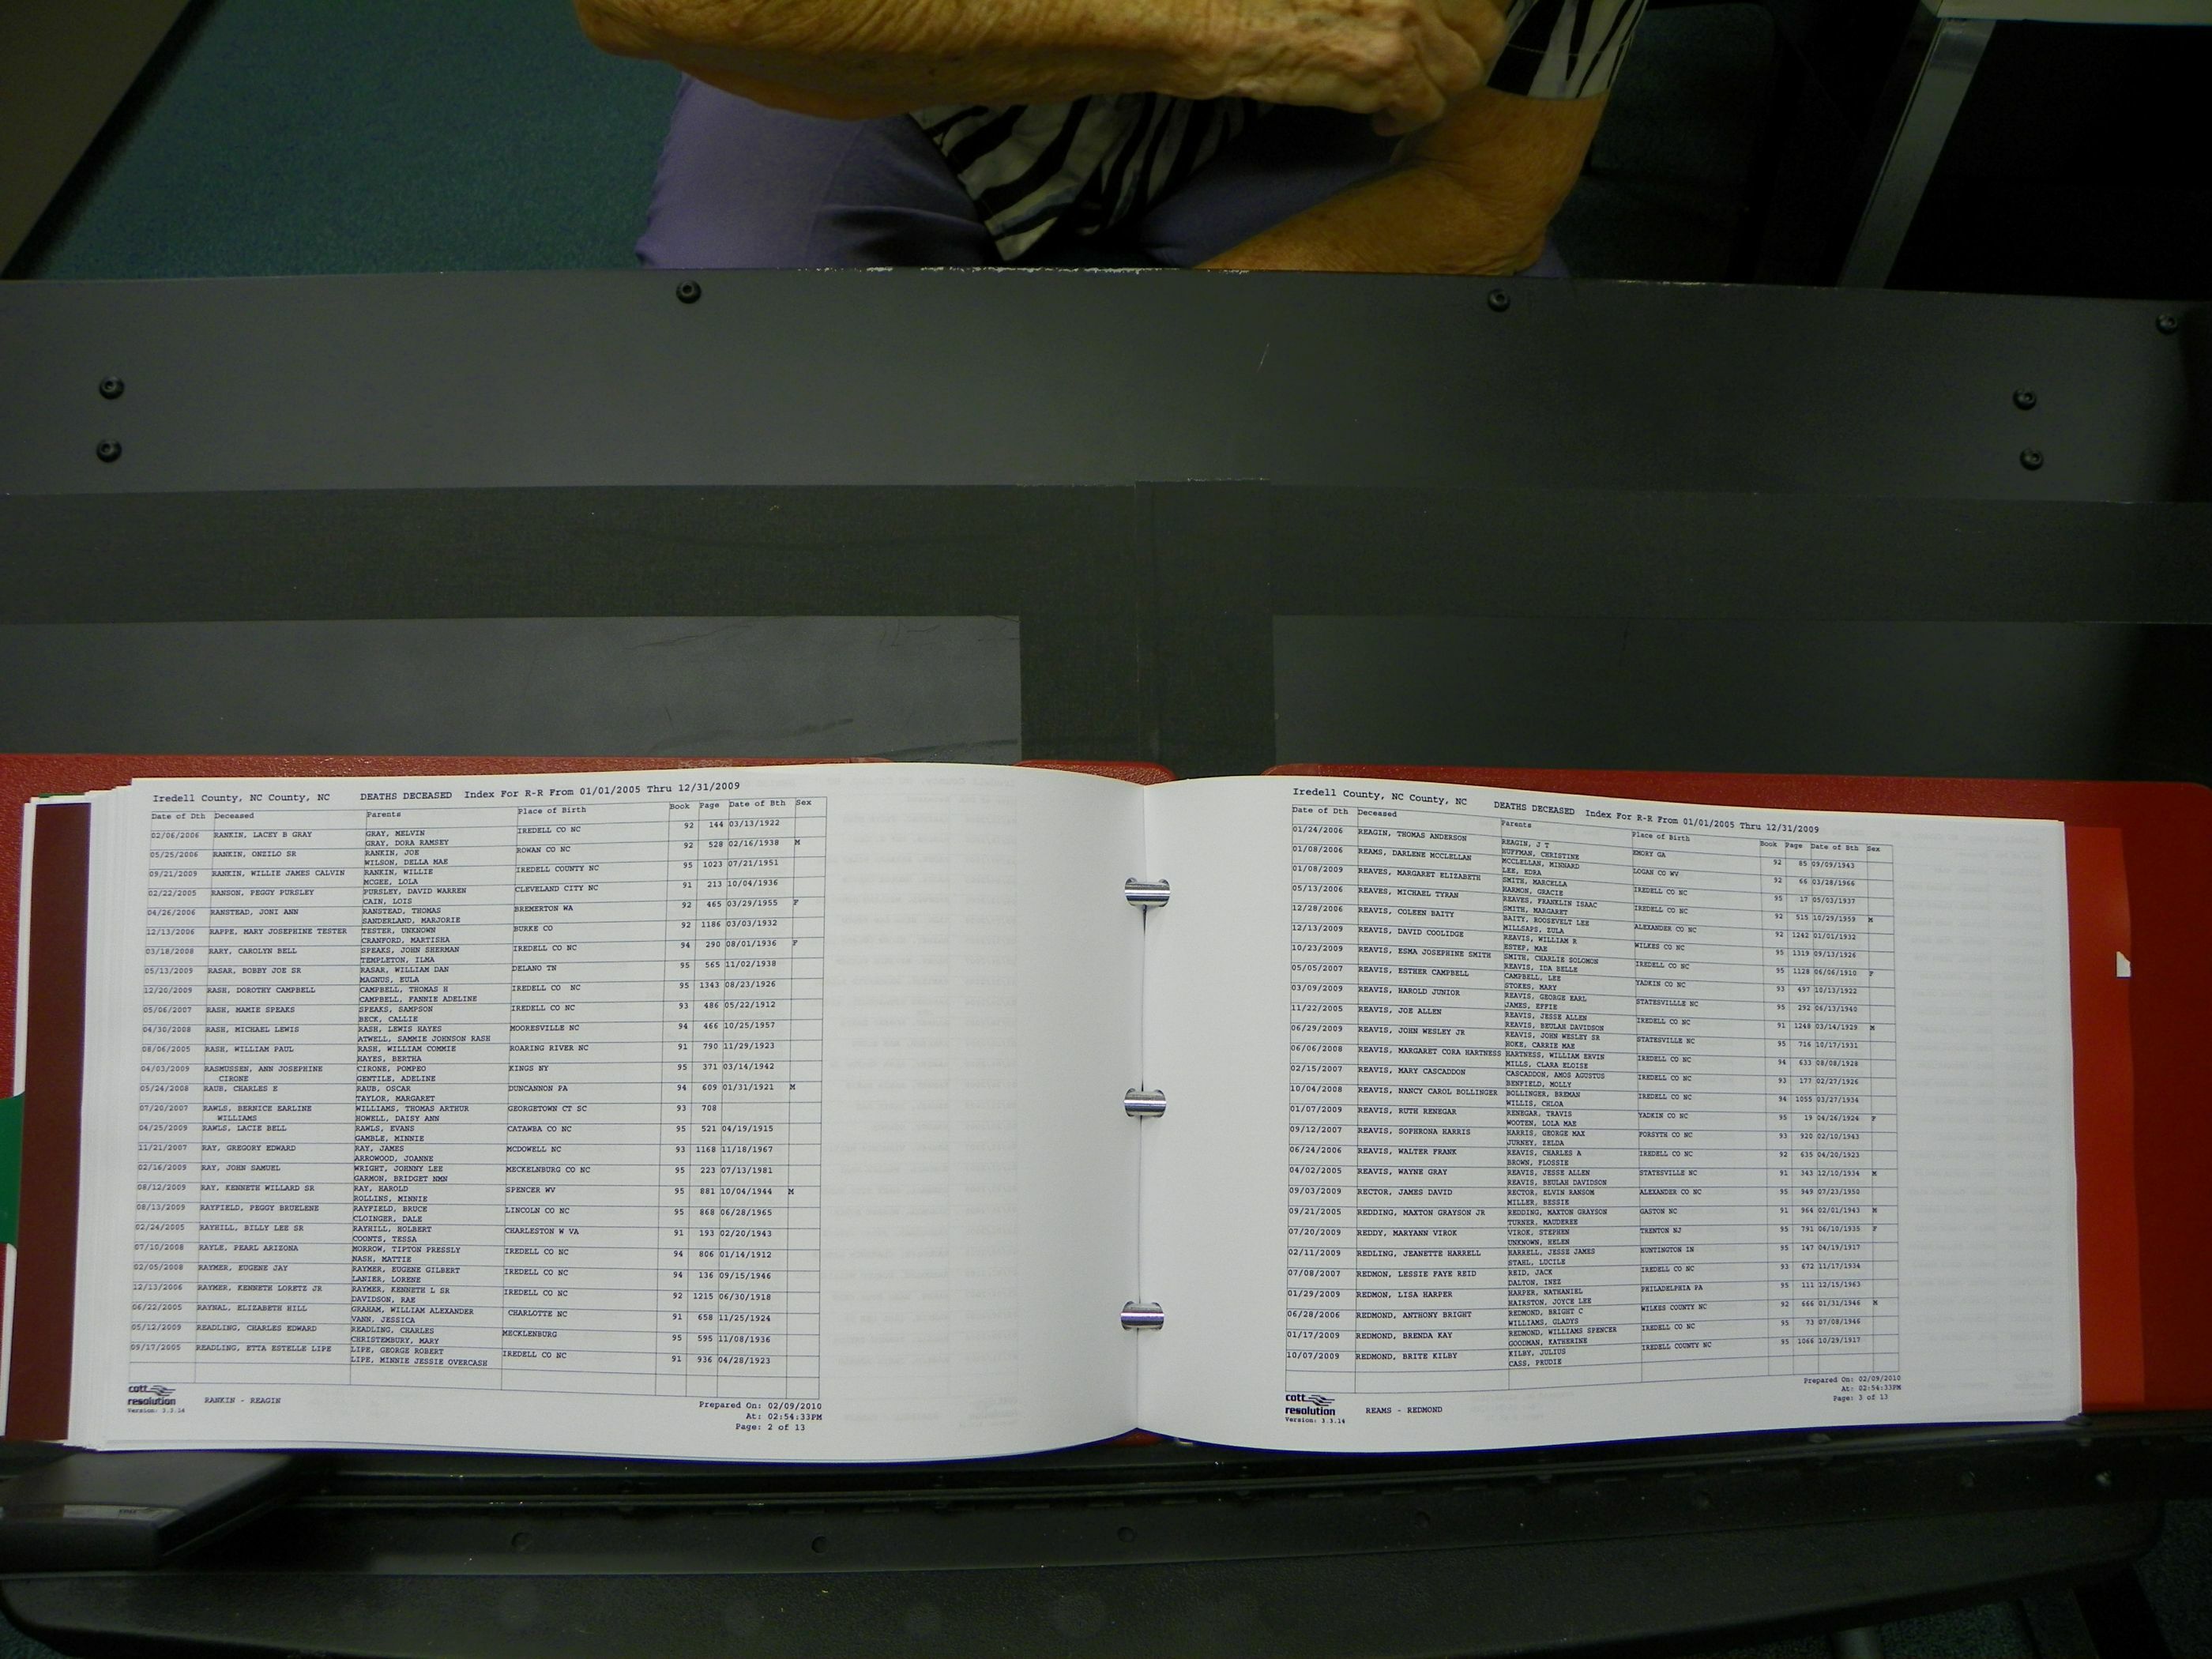 Iredell County, NC County, NC DEATHS DECEASED Index For R-R From 01/01/2005 Thru 12/31/2009
Date of Dth Deceased Parents Place of Birth Book Page Date of Bth Sex
02/06/2006 RANKIN, LACEY B GRAY GRAY, MELVIN IREDELL CO NC 92 144 03/13/1922
GRAY, DORA RAMSEY
05/25/2006 RANKIN, ONZILO SR RANKIN, JOE ROWAN CO NC 92 528 02/16/1938 M
WILSON, DELLA MAE
09/21/2009 RANKIN, WILLIE JAMES CALVIN RANKIN, WILLIE IREDELL COUNTY NC 95 1023 07/21/1951
MCGEE, LOLA
02/22/2005 RANSON, PEGGY PURSLEY PURSLEY, DAVID WARREN CLEVELAND CITY NC 91 213 10/04/1936
CAIN, LOIS
04/26/2006 RANSTEAD, JONI ANN RANSTEAD, THOMAS BREMERTON WA 92 465 03/29/1955 F
SANDERLAND, MARJORIE
12/13/2006 RAPPE, MARY JOSEPHINE TESTER TESTER, UNKNOWN BURKE CO 92 1186 03/03/1932
CRANFORD, MARTISHA
03/18/2008 RARY, CAROLYN BELL SPEAKS, JOHN SHERMAN IREDELL CO NC 94 290 08/01/1936 F
TEMPLETON, ILMA
05/13/2009 RASAR, BOBBY JOE SR RASAR, WILLIAM DAN DELANO TN 95 565 11/02/1938
MAGNUS, EULA
12/20/2009 RASH, DOROTHY CAMPBELL CAMPBELL, THOMAS H IREDELL CO NC 95 1343 08/23/1926
CAMPBELL, FANNIE ADELINE
05/06/2007 RASH, MAMIE SPEAKS SPEAKS, SAMPSON IREDELL CO NC 93 486 05/22/1912
BECK, CALLIE
04/30/2008 RASH, MICHAEL LEWIS RASH, LEWIS HAYES MOORESVILLE NC 94 466 10/25/1957
ATWELL, SAMMIE JOHNSON RASH
08/06/2005 RASH, WILLIAM PAUL RASH, WILLIAM COMMIE ROARING RIVER NC 91 790 11/29/1923
HAYES, BERTHA
04/03/2009 RASMUSSEN, ANN JOSEPHINE CIRONE, POMPEO KINGS NY 95 371 03/14/1942
CIRONE GENTILE, ADELINE
05/24/2008 RAUB, CHARLES E RAUB, OSCAR DUNCANNON PA 94 609 01/31/1921 M
TAYLOR, MARGARET
07/20/2007 RAWLS, BERNICE EARLINE WILLIAMS, THOMAS ARTHUR GEORGETOWN CT SC 93 708
WILLIAMS HOWELL, DAISY ANN
04/25/2009 RAWLS, LACIE BELL RAWLS, EVANS CATAWBA CO NC 95 521 04/19/1915
GAMBLE, MINNIE
11/21/2007 RAY, GREGORY EDWARD RAY, JAMES MCDOWELL NC 93 1168 11/18/1967
ARROWOOD, JOANNE
02/16/2009 RAY, JOHN SAMUEL WRIGHT, JOHNNY LEE MECKELNBURG CO NC 95 223 07/13/1981
GARMON, BRIDGET NMN
08/12/2009 RAY, KENNETH WILLARD SR RAY, HAROLD SPENCER WV 95 881 10/04/1944 M
ROLLINS, MINNIE
08/13/2009 RAYFIELD, PEGGY BRUELENE RAYFIELD, BRUCE LINCOLN CO NC 95 868 06/28/1965
CLOINGER, DALE
02/24/2005 RAYHILL, BILLY LEE SR RAYHILL, HOLBERT CHARLESTON W VA 91 193 02/20/1943
COONTS, TESSA
07/10/2008 RAYLE, PEARL ARIZONA MORROW, TIPTON PRESSLY IREDELL CO NC 94 806 01/14/1912
NASH, MATTIE
02/05/2008 RAYMER, EUGENE JAY RAYMER, EUGENE GILBERT IREDELL CO NC 94 136 09/15/1946
LANIER, LORENE
12/13/2006 RAYMER, KENNETH LORETZ JR RAYMER, KENNETH L SR IREDELL CO NC 92 1215 06/30/1918
DAVIDSON, RAE
06/22/2005 RAYNAL, ELIZABETH HILL GRAHAM, WILLIAM ALEXANDER CHARLOTTE NC 91 658 11/25/1924
VANN, JESSICA
05/12/2009 READLING, CHARLES EDWARD READLING, CHARLES MECKLENBURG 95 595 11/08/1936
CHRISTEMBURY, MARY
09/17/2005 READLING, ETTA ESTELLE LIPE LIPE, GEORGE ROBERT IREDELL CO NC 91 936 04/28/1923
LIPE, MINNIE JESSIE OVERCASH
cott
resolution RANKIN - REAGIN
Version: 3.3.14
Prepared On: 02/09/2010
At: 02:54:33PM
Page: 2 of 13
Iredell County, NC County, NC DEATHS DECEASED Index For R-R From 01/01/2005 Thru 12/31/2009
Date of Dth Deceased Parents Place of Birth Book Page Date of Bth Sex
01/24/2006 REAGIN, THOMAS ANDERSON REAGIN, J T EMORY GA 92 85 09/09/1943
HUFFMAN, CHRISTINE
01/08/2006 REAMS, DARLENE MCCLELLAN MCCLELLAN, MINNARD LOGAN CO WV 92 66 03/28/1966
LEE, EDRA
01/08/2009 REAVES, MARGARET ELIZABETH SMITH, MARCELLA IREDELL CO NC 95 17 05/03/1937
HARMON, GRACIE
05/13/2006 REAVES, MICHAEL TYRAN REAVES, FRANKLIN ISAAC IREDELL CO NC 92 515 10/29/1959 M
SMITH, MARGARET
12/28/2006 REAVIS, COLEEN BAITY BAITY, ROOSEVELT LEE ALEXANDER CO NC 92 1242 01/01/1932
MILLSAPS, ZULA
12/13/2009 REAVIS, DAVID COOLIDGE REAVIS, WILLIAM R WILKES CO NC 95 1319 09/13/1926
ESTEP, MAE
10/23/2009 REAVIS, ESMA JOSEPHINE SMITH SMITH, CHARLIE SOLOMON IREDELL CO NC 95 1128 06/06/1910 F
REAVIS, IDA BELLE
05/05/2007 REAVIS, ESTHER CAMPBELL CAMPBELL, LEE YADKIN CO NC 93 497 10/13/1922
STOKES, MARY
03/09/2009 REAVIS, HAROLD JUNIOR REAVIS, GEORGE EARL STATESVILLLE NC 95 292 06/13/1940
JAMES, EFFIE
11/22/2005 REAVIS, JOE ALLEN REAVIS, JESSE ALLEN IREDELL CO NC 91 1248 03/14/1929 M
REAVIS, BEULAH DAVIDSON
06/29/2009 REAVIS, JOHN WESLEY JR REAVIS, JOHN WESLEY SR STATESVILLE NC 95 716 10/17/1931
HOKE, CARRIE MAE
06/06/2008 REAVIS, MARGARET CORA HARTNESS HARTNESS, WILLIAM ERVIN IREDELL CO NC 94 633 08/08/1928
MILLS, CLARA ELOISE
02/15/2007 REAVIS, MARY CASCADDON CASCADDON, AMOS AGUSTUS IREDELL CO NC 93 177 02/27/1926
BENFIELD, MOLLY
10/04/2008 REAVIS, NANCY CAROL BOLLINGER BOLLINGER, BREMAN IREDELL CO NC 94 1055 03/27/1934
WILLIS, CHLOA
01/07/2009 REAVIS, RUTH RENEGAR RENEGAR, TRAVIS YADKIN CO NC 95 19 04/26/1924 F
WOOTEN, LOLA MAE
09/12/2007 REAVIS, SOPHRONA HARRIS HARRIS, GEORGE MAX FORSYTH CO NC 93 920 02/10/1943
JURNEY, ZELDA
06/24/2006 REAVIS, WALTER FRANK REAVIS, CHARLES A IREDELL CO NC 92 635 04/20/1923
BROWN, FLOSSIE
04/02/2005 REAVIS, WAYNE GRAY REAVIS, JESSE ALLEN STATESVILLE NC 91 343 12/10/1934 M
REAVIS, BEULAH DAVIDSON
09/03/2009 RECTOR, JAMES DAVID RECTOR, ELVIN RANSOM ALEXANDER CO NC 95 949 07/23/1950
MILLER, BESSIE
09/21/2005 REDDING, MAXTON GRAYSON JR REDDING, MAXTON GRAYSON GASTON NC 91 964 02/01/1943 M
TURNER, MAUDEREE
07/20/2009 REDDY, MARYANN VIROK VIROK, STEPHEN TRENTON NJ 95 791 06/10/1935 F
UNKNOWN, HELEN
02/11/2009 REDLING, JEANETTE HARRELL HARRELL, JESSE JAMES HUNTINGTON IN 95 147 04/19/1917
STAHL, LUCILE
07/08/2007 REDMON, LESSIE FAYE REID REID, JACK IREDELL CO NC 93 672 11/17/1934
DALTON, INEZ
01/29/2009 REDMON, LISA HARPER HARPER, NATHANIEL PHILADELPHIA PA 95 111 12/15/1963
HAIRSTON, JOYCE LEE
06/28/2006 REDMOND, ANTHONY BRIGHT REDMOND, BRIGHT C WILKES COUNTY NC 92 666 01/31/1946 M
WILLIAMS, GLADYS
01/17/2009 REDMOND, BRENDA KAY REDMOND, WILLIAMS SPENCER IREDELL CO NC 95 73 07/08/1946
GOODMAN, KATHERINE
10/07/2009 REDMOND, BRITE KILBY KILBY, JULIUS IREDELL COUNTY NC 95 1066 10/29/1917
CASS, PRUDIE
cott
resolution REAMS - REDMOND
Version: 3.3.14
Prepared On: 02/09/2010
At: 02:54:33PM
Page: 3 of 13